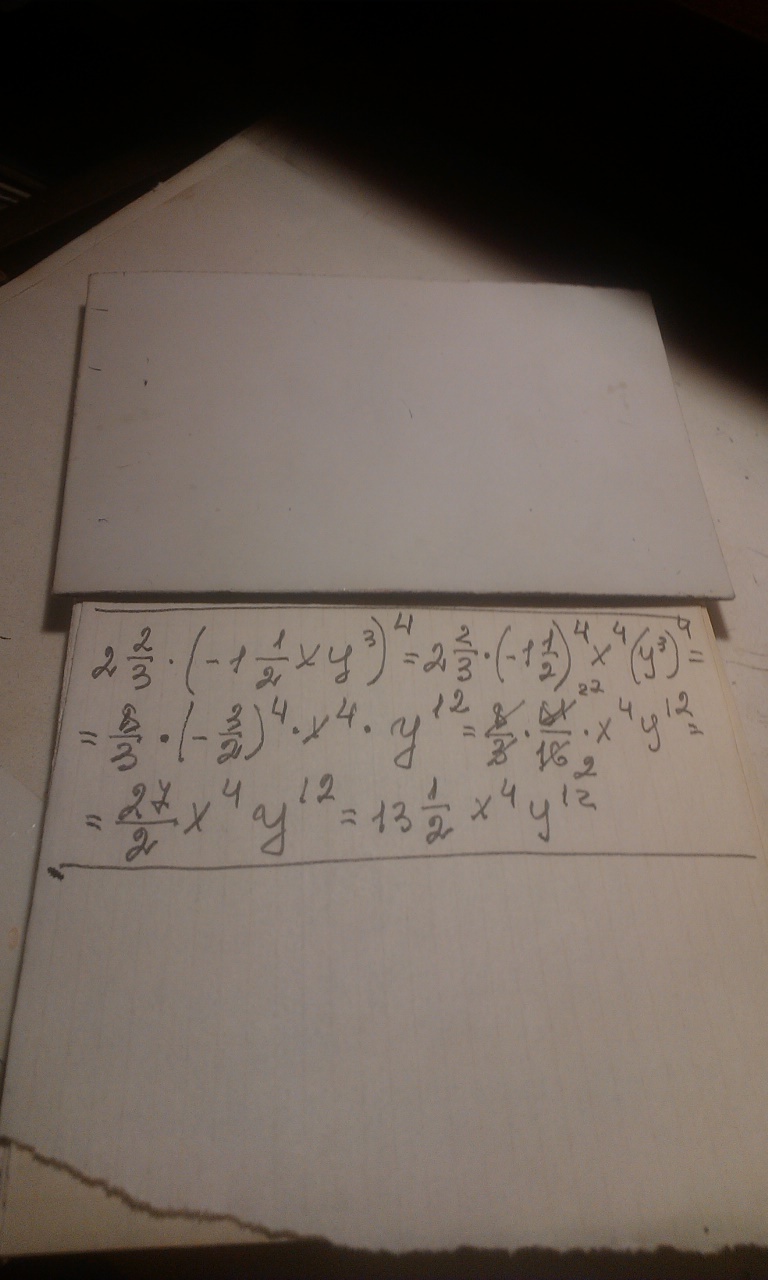 2 2/3 · (-1 1/2 xy³)⁴ = 2 2/3 · (-1 1/2)⁴ x⁴ (y³)⁴ =
= 8/3 · (-3/2)⁴ · x⁴ · y¹² = 8/3 · 81/16 · x⁴ y¹² =
= 27/2 x⁴ y¹² = 13 1/2 x⁴ y¹²